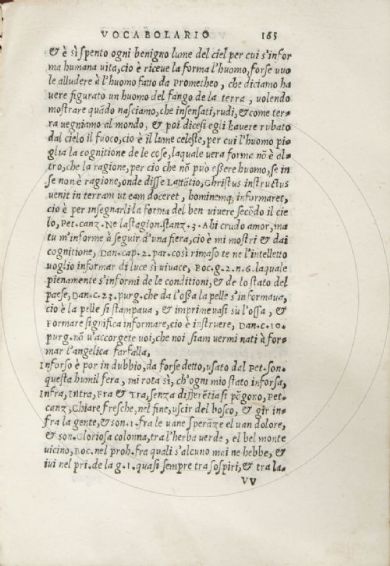 VOCABOLARIO 165
& è sì spento ogni benigno lume del ciel per cui s'infor
ma humana uita, cio è riceue la forma l'huomo, forse uuo
le alludere à l'huomo fatto da Prometheo, che diciamo ha
uere figurato un huomo del fango de la terra, uolendo
mostrare quãdo nasciamo, che insensati, rudi, & come ter=
ra uegniamo al mondo, & poi dicesi egli hauere rubato
dal cielo il fuoco, cio è il lume celeste, per cui l'huomo pi=
glia la cognitione de le cose, laquale uera forma nõ è al=
tro, che la ragione, per ciò che nõ può eßere huomo, se in
se non è ragione, onde disse Lattãtio, Christus instructus
uenit in terram ut eam doceret, hominemq; informaret,
cio è per insegnarli la forma del ben uiuere secõdo il cie
lo, Pet. canz. Ne la stagion. stanz. 3. Ahi crudo amor, ma
tu m'informe à seguir d'una fiera, cio è mi mostri & dai
cognitione, Dan. cap. 2. par. così rimaso te ne l'intelletto
uoglio informar di luce sì uiuace, Boc. g. 2. n. 6. laquale
pienamente s'informi de le conditioni, & de lo stato del
paese, Dan. c. 23. purg. che da l'oßa la pelle s'informaua,
cio è la pelle si stampaua, & imprimeuasi su l'ossa, &
Formare significa informare, cio è instruere, Dan. c. 10.
purg. nõ u'accorgete uoi, che noi siam uermi nati à for=
mar l'angelica farfalla,
Inforso è por in dubbio, da forse detto, usato dal Pet. son.
questa humil fera, mi rota sì, ch'ogni mio stato inforsa,
Infra, Intra, Fra & Tra, senza differẽtia si põgono, Pet.
canz. Chiare fresche, nel fine, uscir del bosco, & gir in=
fra la gente, & son. 1. fra le uane sperãze el uan dolore,
& son. Gloriosa colonna, tra l'herba uerde, el bel monte
uicino, Boc. nel proh. fra quali s'alcuno mai ne hebbe, &
iui nel pri. de la g. 1. quasi sempre tra sospiri, & tra la=
VV